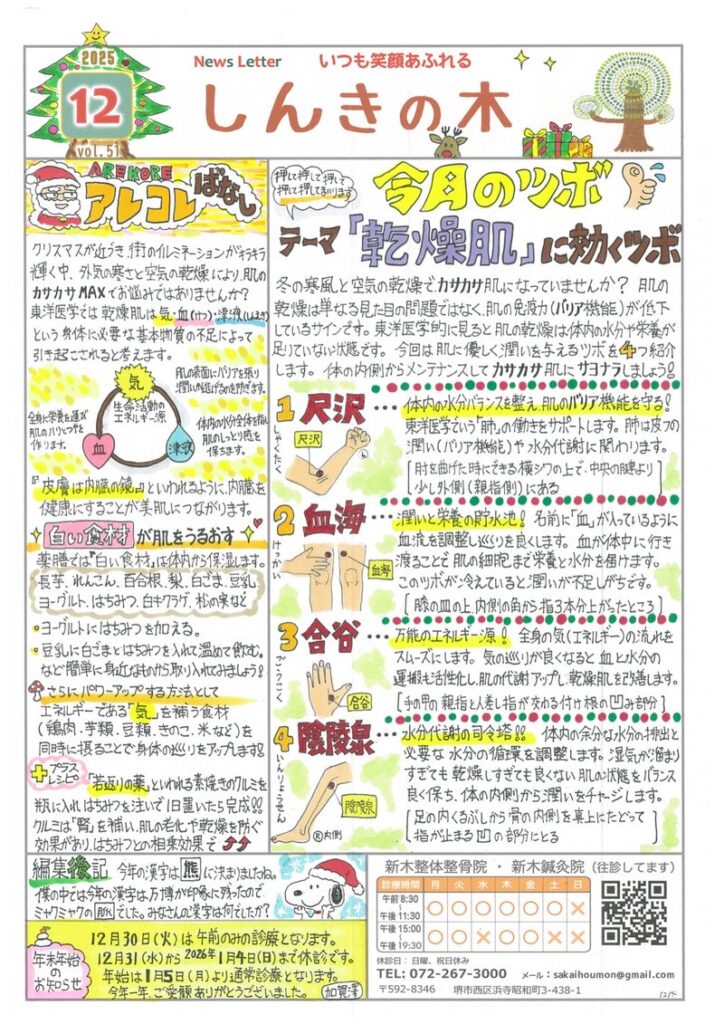 2025
12
vol.51
News Letter
いつも笑顔あふれる
しんきの木
AREKORE
アレコレ
ばなし
クリスマスが近づき、街のイルミネーションがキラキラ
輝く中、外気の寒さと空気の乾燥により、肌の
カサカサMAXでお悩みではありませんか?
東洋医学では乾燥肌は気・血(けつ)・津液(しんえき)
という身体に必要な基本物質の不足によって
引き起こされると考えます。
気
生命活動の
エネルギー源
肌の表面にバリアを張り
潤いが逃げるのを防ぎます。
全身に栄養を運び
肌のハリやツヤを
作ります。
血
津液
体内の水分全体を指し
肌のしっとり感を
保ちます。
『皮膚は内臓の鏡』といわれるように、内臓を
健康にすることが美肌につながります。
白い食材が肌をうるおす
薬膳では"白い食材"は体内から保湿します。
長芋、れんこん、百合根、梨、白ごま、豆乳
ヨーグルト、はちみつ、白キクラゲ、松の実など
・ヨーグルトにはちみつを加える。
・豆乳に白ごまとはちみつを入れて温めて飲む。
など簡単に身近なものから取り入れてみましょう!
さらにパワーアップする方法として
エネルギーである「気」を補う食材
(鶏肉、芋類、豆類、きのこ、米など)を
同時に摂ることで身体の巡りをアップします!
プラス
レシピ
「若返りの薬」といわれる素焼きのクルミを
瓶に入れはちみつを注いで1日置いたら完成!!
クルミは「腎」を補い、肌の老化や乾燥を防ぐ
効果があり、はちみつとの相乗効果で
押して押して押して
押して押してまいります
今月のツボ
テーマ「乾燥肌」に効くツボ
冬の寒風と空気の乾燥でカサカサ肌になっていませんか? 肌の
乾燥は単なる見た目の問題ではなく、肌の免疫力(バリア機能)が低下
しているサインです。東洋医学的に見ると肌の乾燥は体内の水分や栄養が
足りていない状態です。 今回は肌に優しく潤いを与えるツボを4つ紹介
します。 体の内側からメンテナンスしてカサカサ肌にサヨナラしましょう!
1 尺沢
しゃくたく
尺沢
…体内の水分バランスを整え、肌のバリア機能を守る!
東洋医学でいう「肺」の働きをサポートします。肺は皮フの
潤い(バリア機能)や水分代謝に関わります。
[肘を曲げた時にできる横ジワの上で、中央の腱より
少し外側(親指側)にある]
2 血海
けっかい
血海
…潤いと栄養の貯水池! 名前に「血」が入っているように
血流を調整し巡りを良くします。血が体中に行き
渡ることで肌の細胞まで栄養と水分を届けます。
このツボが冷えていると潤いが不足しがちです。
[膝の皿の上、内側の角から指3本分上がったところ]
3 合谷
ごうこく
合谷
…万能のエネルギー源! 全身の気(エネルギー)の流れを
スムーズにします。気の巡りが良くなると血と水分の
運搬も活性化し、肌の代謝アップし、乾燥肌を改善します。
[手の甲の親指と人差し指が交わる付け根の凹み部分]
4 陰陵泉
いんりょうせん
陰陵泉
内側
…水分代謝の司令塔!! 体内の余分な水分の排出と
必要な水分の循環を調整します。湿気が溜まり
すぎても乾燥しすぎても良くない肌の状態をバランス
良く保ち、体の内側から潤いをチャージします。
[足の内くるぶしから骨の内側を真上にたどって
指が止まる凹の部分にとる]
編集後記
今年の漢字は「熊」に決まりましたね。
僕の中では今年の漢字は、万博が印象に残ったので
ミャクミャクの脈でした。みなさんの漢字は何でしたか?
年末年始
のお知らせ
12月30日(火)は午前のみの診療となります。
12月31(水)から2026年1月4日(日)まで休診です。
年始は1月5日(月)より通常診療となります。
今年一年、ご愛顧ありがとうございました。
加賀澤
新木整体整骨院 ・ 新木鍼灸院 (往診してます)
診療時間 月 火 水 木 金 土 日
午前8:30
~
午前11:30
○ ○ ○ ○ ○ ○ ×
午後15:00
~
午後19:30
○ ○ × ○ ○ × ×
休診日:日曜、祝日休み
TEL: 072-267-3000 メール:sakaihoumon@gmail.com
〒592-8346 堺市西区浜寺昭和町3-438-1